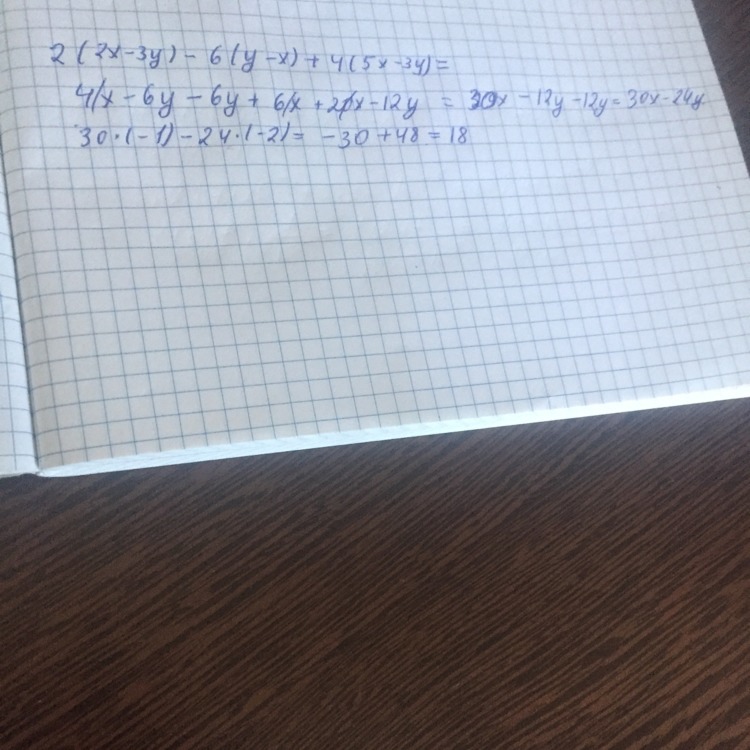 2(2x-3y)-6(y-x)+4(5x-3y)=
4x-6y-6y+6x+20x-12y = 30x-12y-12y=30x-24y
30·(-1)-24·(-2)= -30+48=18